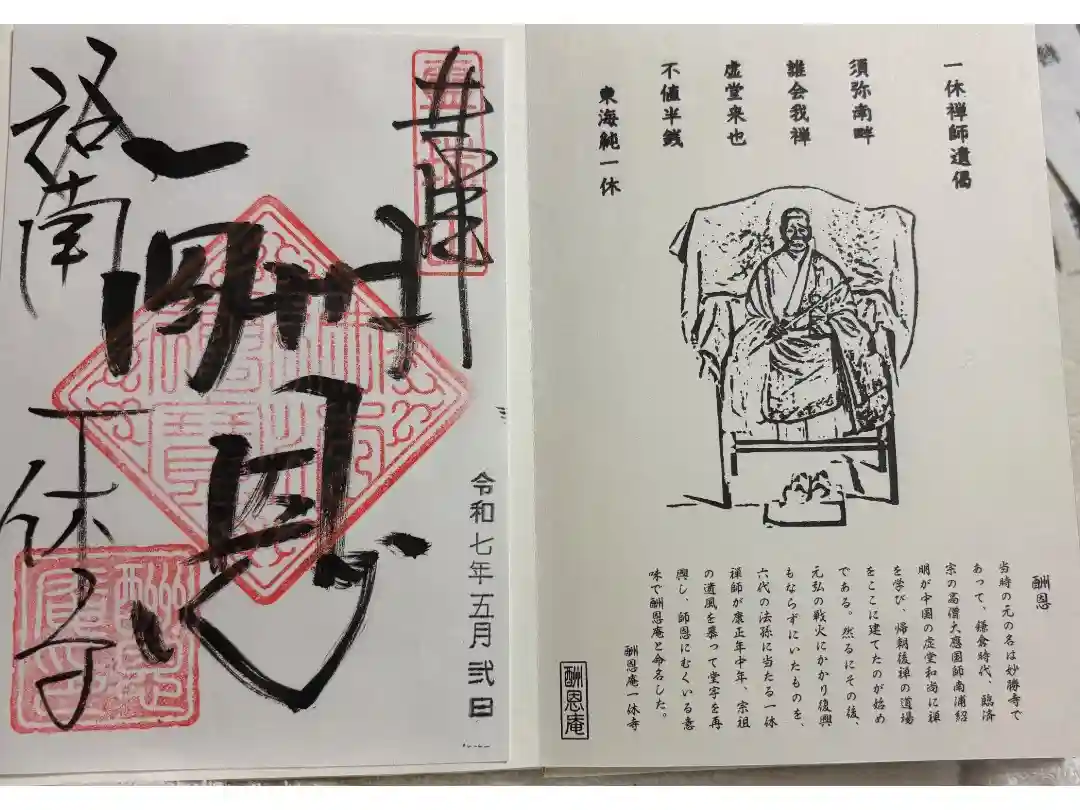 一休禅師遺偈
須弥南畔
誰会我禅
虚堂来也
不値半銭
東海純一休
酬恩
当時の元の名は妙勝寺で
あって、鎌倉時代、臨済
宗の高僧大應国師南浦紹
明が中国の虚堂和尚に禅
を学び、帰朝後禅の道場
をここに建てたのが始め
である。然るにその後、
元弘の戦火にかかり復興
もならずにいたものを、
六代の法孫に当たる一休
禅師が康正年中年、宗祖
の遺風を慕って堂宇を再
興し、師恩にむくいる意
味で酬恩庵と命名した。
酬恩庵一休寺
酬恩庵
奉拝
令和七年五月弐日
酬恩
洛南
一休寺